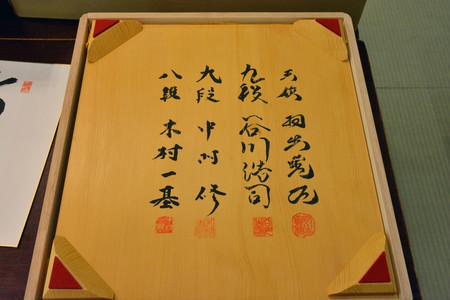 王位 羽生善治
九段 谷川浩司
九段 中村修
八段 木村一基